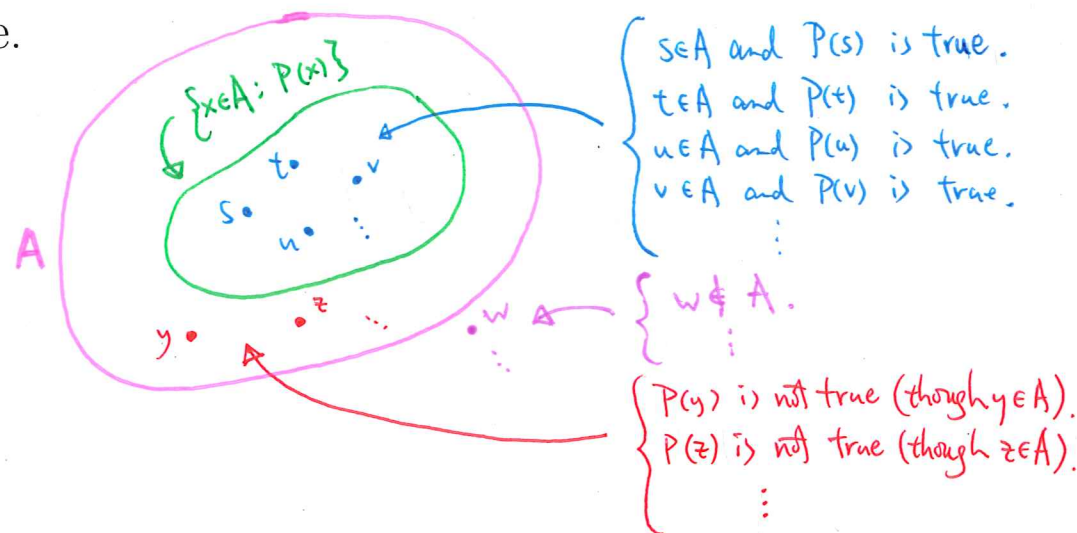 e.
{x∈A: P(x)}
A
t
v
s
u
⋮
y
z
...
w
⋮
s∈A and P(s) is true.
t∈A and P(t) is true.
u∈A and P(u) is true.
v∈A and P(v) is true.
⋮
w∉A.
⋮
P(y) is not true (though y∈A).
P(z) is not true (though z∈A).
⋮